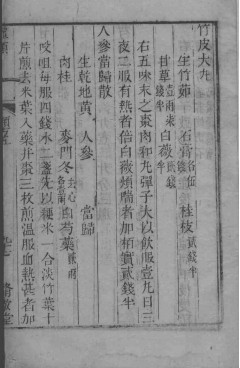 竹皮大丸
生竹茹 石膏各貳 桂枝貳錢半
甘草壹兩柒錢半 白薇貳錢半
右五味末之棗肉和丸彈子大以飲服壹丸日三
夜二服有熱者倍白薇煩喘者加栢實貳錢半
人參當歸散
生乾地黃 人參 當歸
肉桂 麥門冬去心 白芍藥
㕮咀每服四錢水二盞先以粳米一合淡竹葉十
片煎去米葉入藥并棗三枚煎溫服血熱甚者加